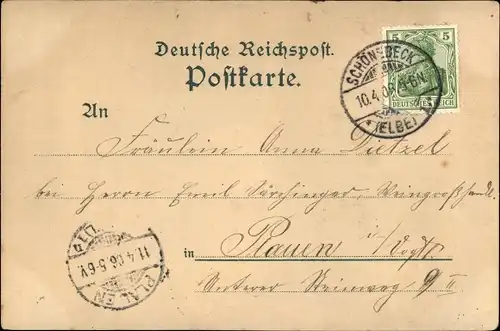 Deutsche Reichspost.
Postkarte.
5 5
DEUTSCHES REICH
SCHÖNEBECK
10.4.06. 5-6N.
* (ELBE) *
An
Fräulein Anna Dietzel
bei Herrn Emil Särchinger, Weingroßhandl.
in Plauen i/Vogtl.
Unterer Steinweg 9 II
PLAUEN
11.4.06.5-6V.